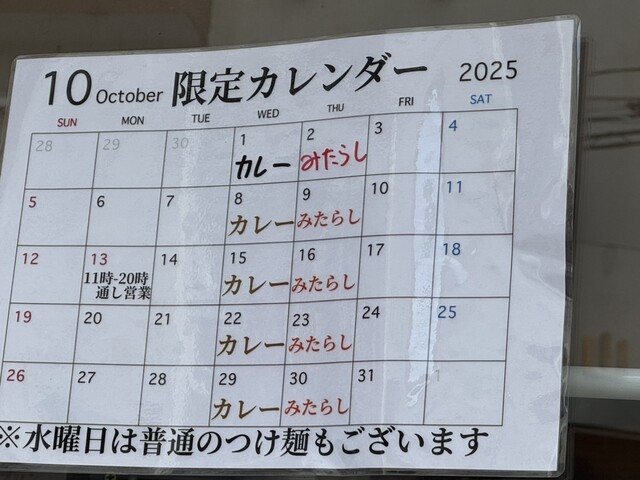 10 October 限定カレンダー 2025
SUN MON TUE WED THU FRI SAT
28 29 30 1 2 3 4
カレー みたらし
5 6 7 8 9 10 11
カレー みたらし
12 13 14 15 16 17 18
11時-20時
通し営業
カレー みたらし
19 20 21 22 23 24 25
カレー みたらし
26 27 28 29 30 31 1
カレー みたらし
※水曜日は普通のつけ麺もございます